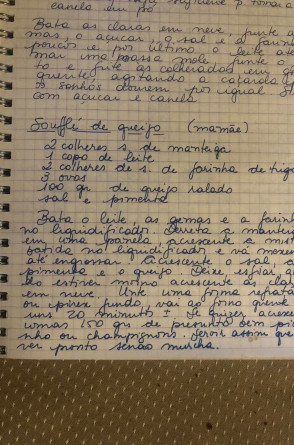 canela em pó
Bata as claras em neve, junte a
mas, o açucar, o sal e a farinh
poucos e por último o leite até
mar uma massa mole junte o
to e frite as colheradas em
quente agitando a caçarola
os sonhos dourem por igual
com açucar e canela
Soufflé de queijo (mamãe)
2 colheres s. de manteiga
1 copo de leite
2 colheres de s. de farinha de trigo
3 ovos
100 gr de queijo ralado
sal e pimenta
Bata o leite, as gemas e a farin
no liquidificador. Derreta a manteig
em uma panela acrescente a mist
batida no liquidificador e vá mexe
até engrossar. Acrescente o sal, a
pimenta e o queijo. Deixe esfriar, qua
do estiver morno acrescente as cla
em neve. Unte uma forma refratá
ou pirex fundo, vai ao forno quente
uns 20 minutos ± Se quizer acresce
umas 150 grs de presunto bem pic
nho ou champignons. Servir assim que
ver pronto senão murcha.